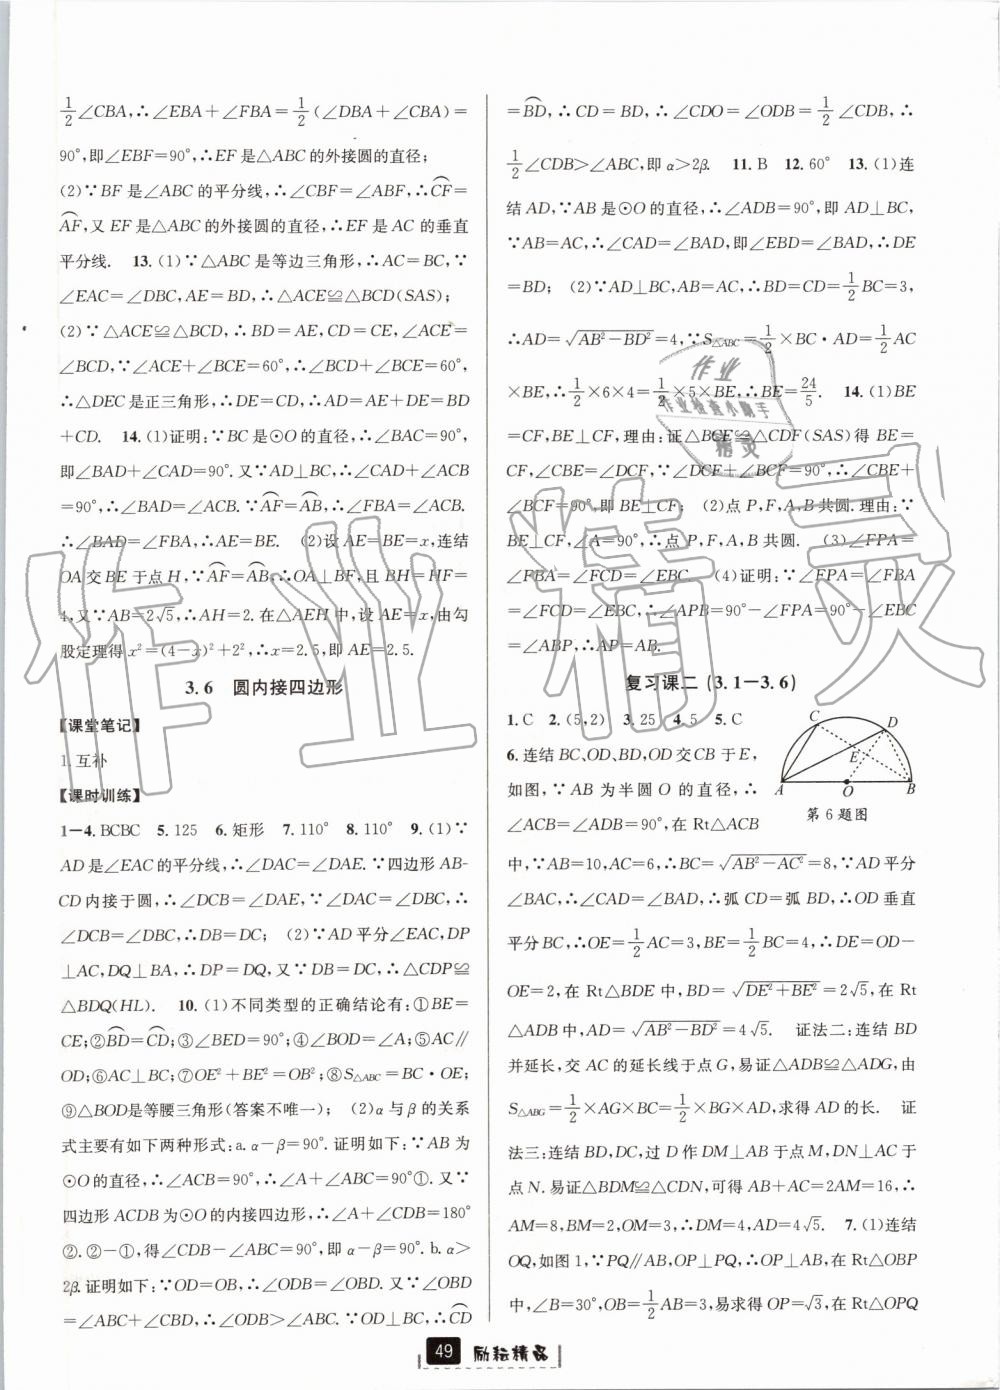 1/2∠CBA,∴∠EBA+∠FBA=1/2(∠DBA+∠CBA)=
90°,即∠EBF=90°,∴EF是△ABC的外接圆的直径;
(2)∵BF是∠ABC的平分线,∴∠CBF=∠ABF,∴⌒CF=
⌒AF,又EF是△ABC的外接圆的直径,∴EF是AC的垂直
平分线. 13.(1)∵△ABC是等边三角形,∴AC=BC,∵
∠EAC=∠DBC,AE=BD,∴△ACE≌△BCD(SAS);
(2)∵△ACE≌△BCD,∴BD=AE,CD=CE,∠ACE=
∠BCD,∵∠ACE+∠BCE=60°,∴∠BCD+∠BCE=60°,
∴△DEC是正三角形,∴DE=CD,∴AD=AE+DE=BD
+CD. 14.(1)证明:∵BC是⊙O的直径,∴∠BAC=90°,
即∠BAD+∠CAD=90°.又∵AD⊥BC,∴∠CAD+∠ACB
=90°,∴∠BAD=∠ACB.∵⌒AF=⌒AB,∴∠FBA=∠ACB.
∴∠BAD=∠FBA,∴AE=BE. (2)设AE=BE=x,连结
OA交BE于点H,∵⌒AF=⌒AB,∴OA⊥BF,且BH=HF=
4,又∵AB=2√5,∴AH=2.在△AEH中,设AE=x,由勾
股定理得x²=(4-x)²+2²,∴x=2.5,即AE=2.5.
3.6 圆内接四边形
【课堂笔记】
1.互补
【课时训练】
1—4.BCBC 5.125 6.矩形 7.110° 8.110° 9.(1)∵
AD是∠EAC的平分线,∴∠DAC=∠DAE.∵四边形AB-
CD内接于圆,∴∠DCB=∠DAE,∵∠DAC=∠DBC,∴
∠DCB=∠DBC,∴DB=DC; (2)∵AD平分∠EAC,DP
⊥AC,DQ⊥BA,∴DP=DQ,又∵DB=DC,∴△CDP≌
△BDQ(HL). 10.(1)不同类型的正确结论有:①BE=
CE;②⌒BD=⌒CD;③∠BED=90°;④∠BOD=∠A;⑤AC∥
OD;⑥AC⊥BC;⑦OE²+BE²=OB²;⑧S△ABC=BC·OE;
⑨△BOD是等腰三角形(答案不唯一); (2)α与β的关系
式主要有如下两种形式:a.α-β=90°.证明如下:∵AB为
⊙O的直径,∴∠ACB=90°,∴∠A+∠ABC=90°①.又∵
四边形ACDB为⊙O的内接四边形,∴∠A+∠CDB=180°
②.②-①,得∠CDB-∠ABC=90°,即α-β=90°.b.α>
2β.证明如下:∵OD=OB,∴∠ODB=∠OBD.又∵∠OBD
=∠ABC+∠CBD,∴∠ODB>∠ABC.∵OD⊥BC,∴⌒CD
=⌒BD,∴CD=BD,∴∠CDO=∠ODB=1/2∠CDB,∴
1/2∠CDB>∠ABC,即α>2β. 11.B 12.60° 13.(1)连
结AD,∵AB是⊙O的直径,∴∠ADB=90°,即AD⊥BC,
∵AB=AC,∴∠CAD=∠BAD,即∠EBD=∠BAD,∴DE
=BD; (2)∵AD⊥BC,AB=AC,∴BD=CD=1/2BC=3,
∴AD=√(AB²-BD²)=4,∵S△ABC=1/2×BC×AD=1/2AC
×BE,∴1/2×6×4=1/2×5×BE,∴BE=24/5. 14.(1)BE
=CF,BE⊥CF,理由:证△BCE≌△CDF(SAS)得BE=
CF,∠CBE=∠DCF,∵∠DCF+∠BCF=90°,∴∠CBE+
∠BCF=90°,即BE⊥CF; (2)点P,F,A,B共圆.理由:∵
BE⊥CF,∠A=90°,∴点P,F,A,B共圆. (3)∠FPA=
∠FBA=∠FCD=∠EBC (4)证明:∵∠FPA=∠FBA
=∠FCD=∠EBC,∴∠APB=90°-∠FPA=90°-∠EBC
=∠ABP,∴AP=AB.
复习课二(3.1—3.6)
1.C 2.(5,2) 3.25 4.5 5.C
6.连结BC,OD,BD,OD交CB于E,
如图,∵AB为半圆O的直径,∴
∠ACB=∠ADB=90°,在Rt△ACB
C
D
E
A
O
B
第6题图
中,∵AB=10,AC=6,∴BC=√(AB²-AC²)=8,∵AD平分
∠BAC,∴∠CAD=∠BAD,∴弧CD=弧BD,∴OD垂直
平分BC,∴OE=1/2AC=3,BE=1/2BC=4,∴DE=OD-
OE=2,在Rt△BDE中,BD=√(DE²+BE²)=2√5,在Rt
△ADB中,AD=√(AB²-BD²)=4√5. 证法二:连结BD
并延长,交AC的延长线于点G,易证△ADB≌△ADG,由
S△ABG=1/2×AG×BC=1/2×BG×AD,求得AD的长. 证
法三:连结BD,DC,过D作DM⊥AB于点M,DN⊥AC于
点N.易证△BDM≌△CDN,可得AB+AC=2AM=16,∴
AM=8,BM=2,OM=3,∴DM=4,AD=4√5. 7.(1)连结
OQ,如图1,∵PQ∥AB,OP⊥PQ,∴OP⊥AB,在Rt△OBP
中,∠B=30°,OB=1/2AB=3,易求得OP=√3,在Rt△OPQ
49 励耘精品
作业
作业检查小助手
精灵
作业精灵